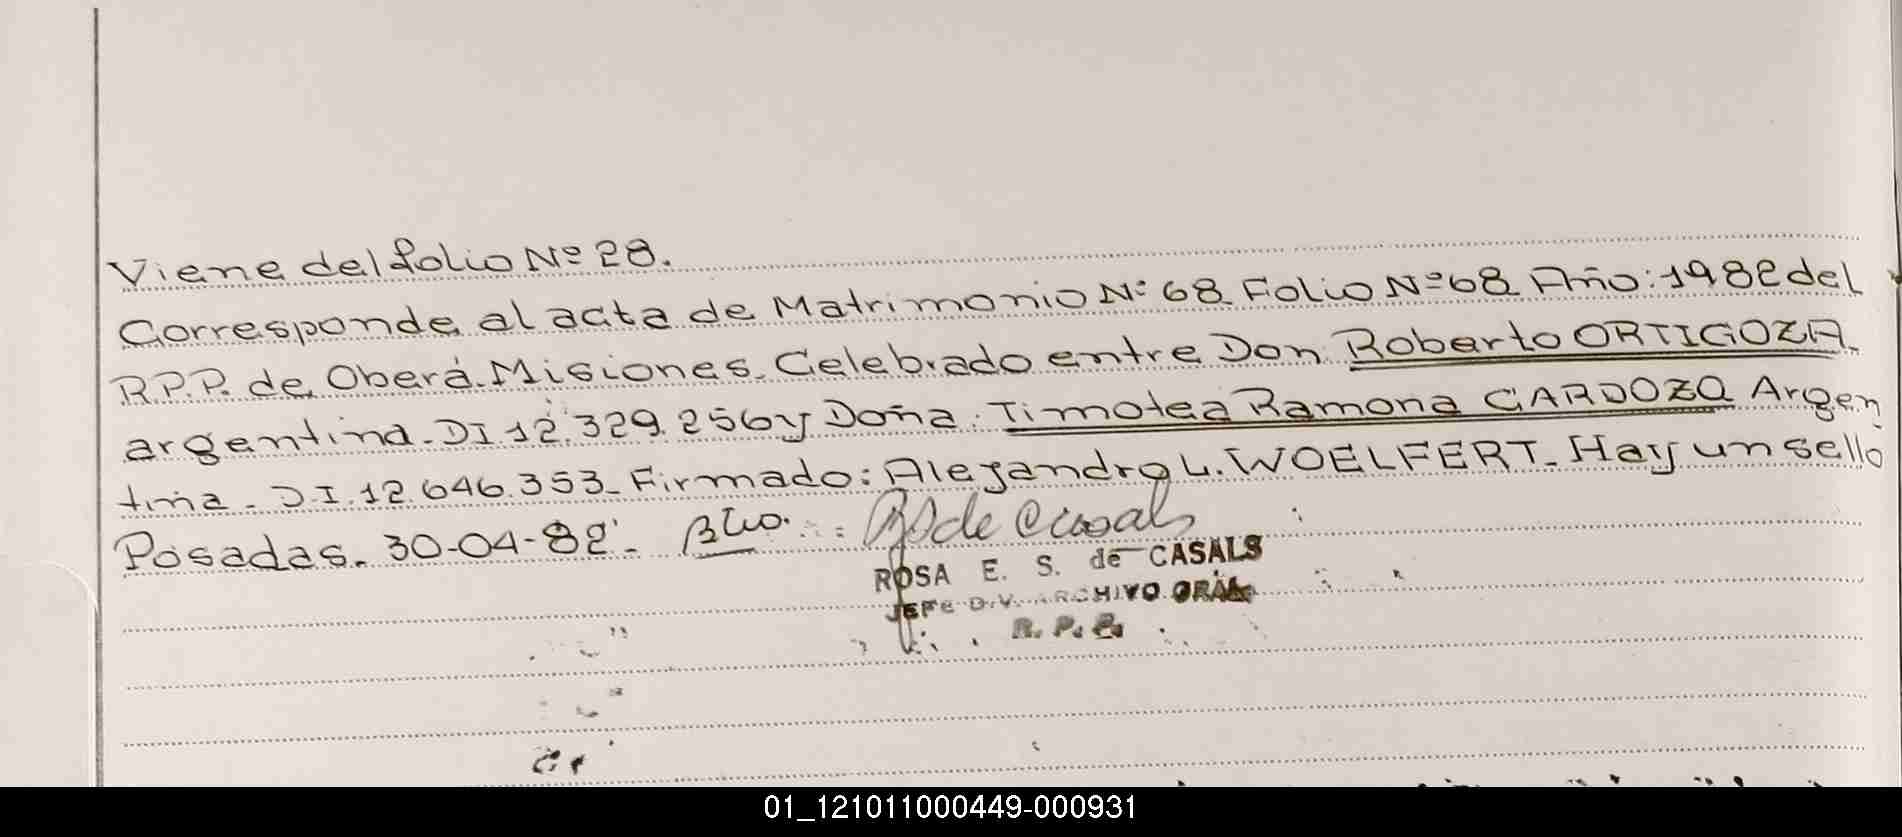 Viene del folio Nº 28.
Corresponde al acta de Matrimonio Nº 68 Folio Nº 68 Año: 1982 del
R.P.P. de Oberá. Misiones. Celebrado entre Don Roberto ORTIGOZA.
argentina. DI 12.329.256 y Doña: Timotea Ramona CARDOZO Argen
tina. D.I. 12.646.353. Firmado: Alejandro L. WOELFERT. Hay un sello
Posadas. 30-04-82.
de Casals
ROSA E. S. de CASALS
JEFE DIV. ARCHIVO GRAL.
R. P. P.
01_121011000449-000931